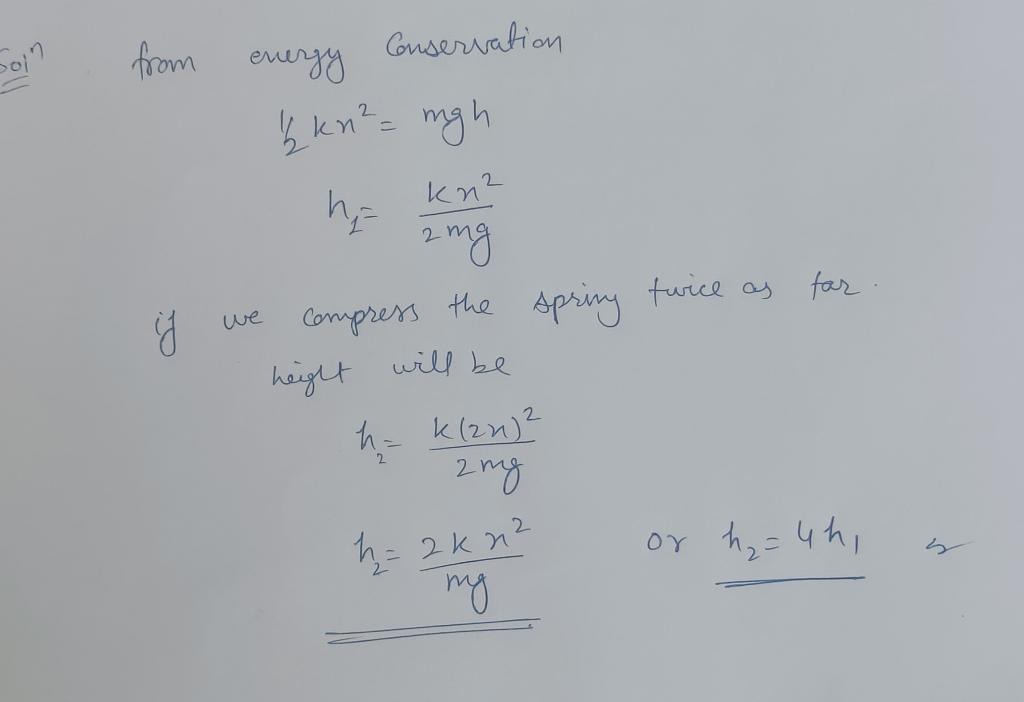 Solⁿ from energy Conservation
½ kx² = mgh
h₁ = kx² / 2mg
if we compress the spring twice as far.
height will be
h₂ = k(2x)² / 2mg
h₂ = 2kx² / mg or h₂ = 4h₁